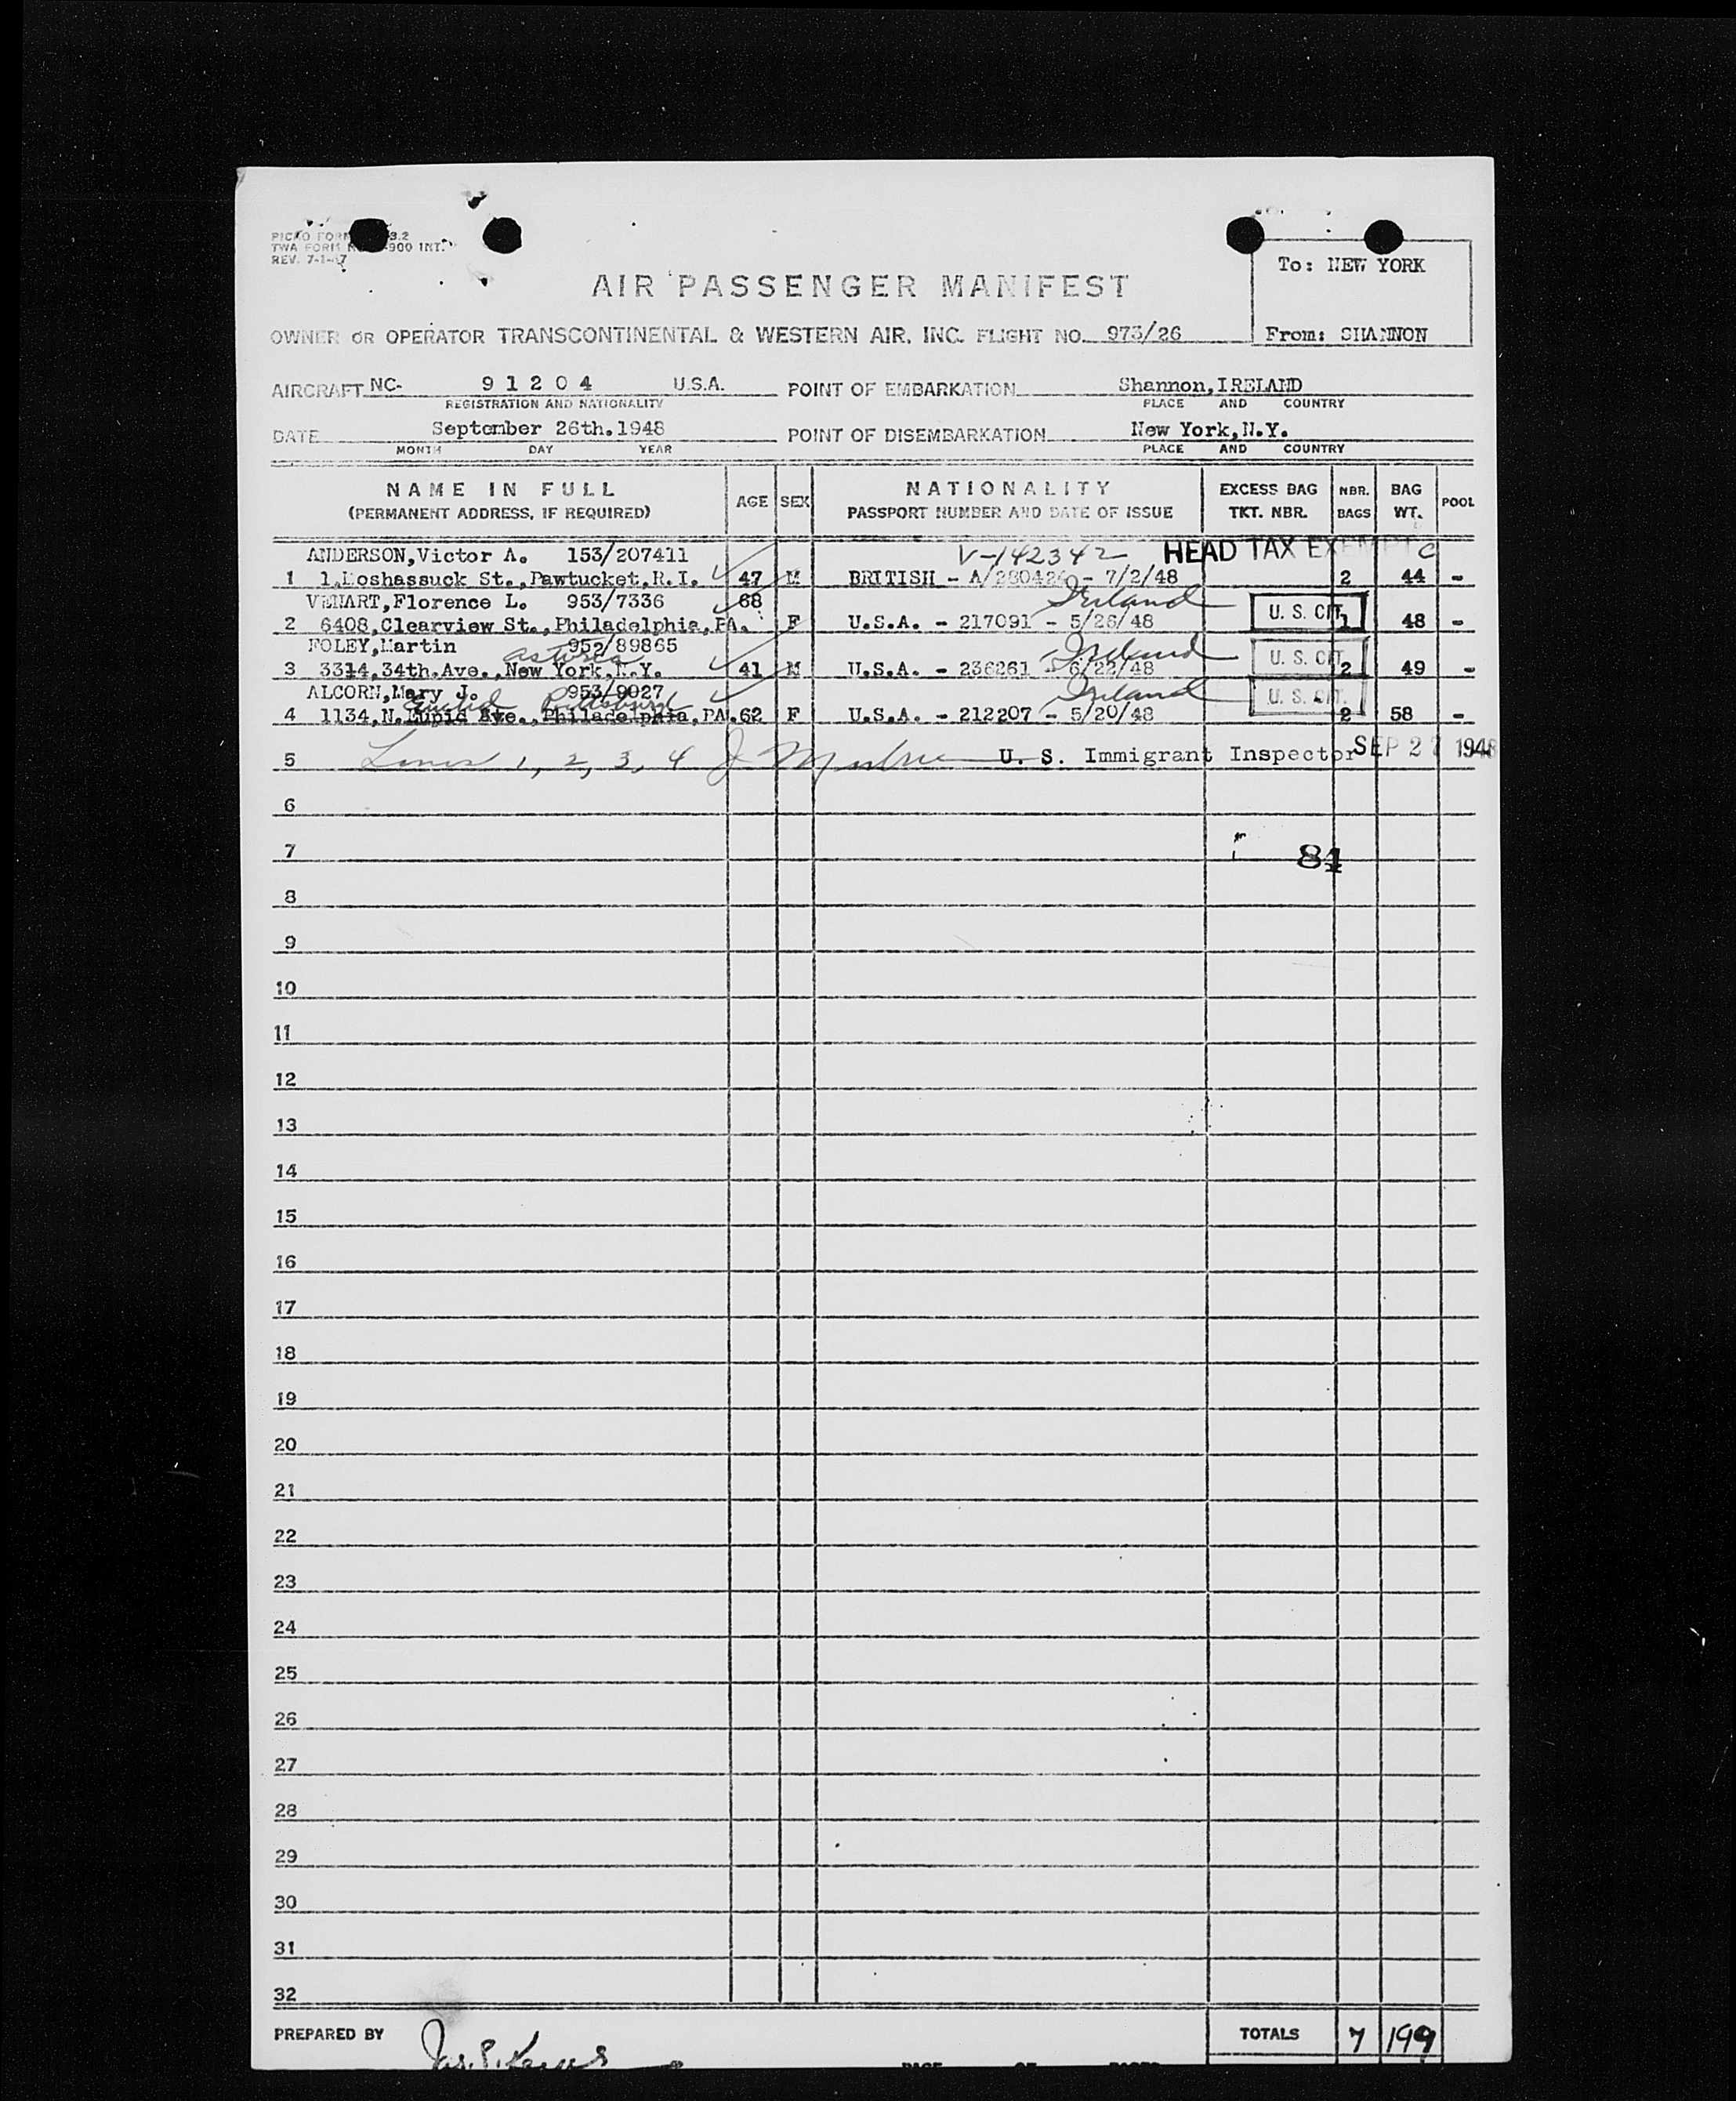 PICAO FORM 3.2
TWA FORM N -900 INT.
REV. 7-1-47
To: NEW YORK
From: SHANNON
AIR PASSENGER MANIFEST
OWNER OR OPERATOR TRANSCONTINENTAL & WESTERN AIR, INC. FLIGHT NO. 973/26
AIRCRAFT NC- 91204 U.S.A. POINT OF EMBARKATION Shannon,IRELAND
REGISTRATION AND NATIONALITY PLACE AND COUNTRY
DATE September 26th.1948 POINT OF DISEMBARKATION New York,N.Y.
MONTH DAY YEAR PLACE AND COUNTRY
NAME IN FULL AGE SEX NATIONALITY EXCESS BAG NBR. BAG POOL
(PERMANENT ADDRESS, IF REQUIRED) PASSPORT NUMBER AND DATE OF ISSUE TKT. NBR. BAGS WT.
ANDERSON,Victor A. 153/207411 V-142342 HEAD TAX EXEMPT C
1 1,Moshassuck St.,Pawtucket,R.I. 47 M BRITISH - - 7/2/48 2 44 -
Florence L. 953/7336 68 Ireland U. S. CIT.
2 6408,Clearview St.,Philadelphia,PA. F U.S.A. - 217091 - 5/26/48 1 48 -
FOLEY,Martin 952/89865 Astoria Ireland U. S. CIT.
3 3314,34th.Ave.,New York,N.Y. 41 M U.S.A. - 236261 - 6/22/48 2 49 -
ALCORN,Mary J. 953/9027 Ireland U. S. CIT.
Euclid Pittsburgh
4 1134,N.Eupid Ave.,Philadelphia,PA. 62 F U.S.A. - 212207 - 5/20/48 2 58 -
5 Lines 1, 2, 3, 4 U. S. Immigrant Inspector SEP 27 1948
6
7 84
8
9
10
11
12
13
14
15
16
17
18
19
20
21
22
23
24
25
26
27
28
29
30
31
32
PREPARED BY TOTALS 7 199